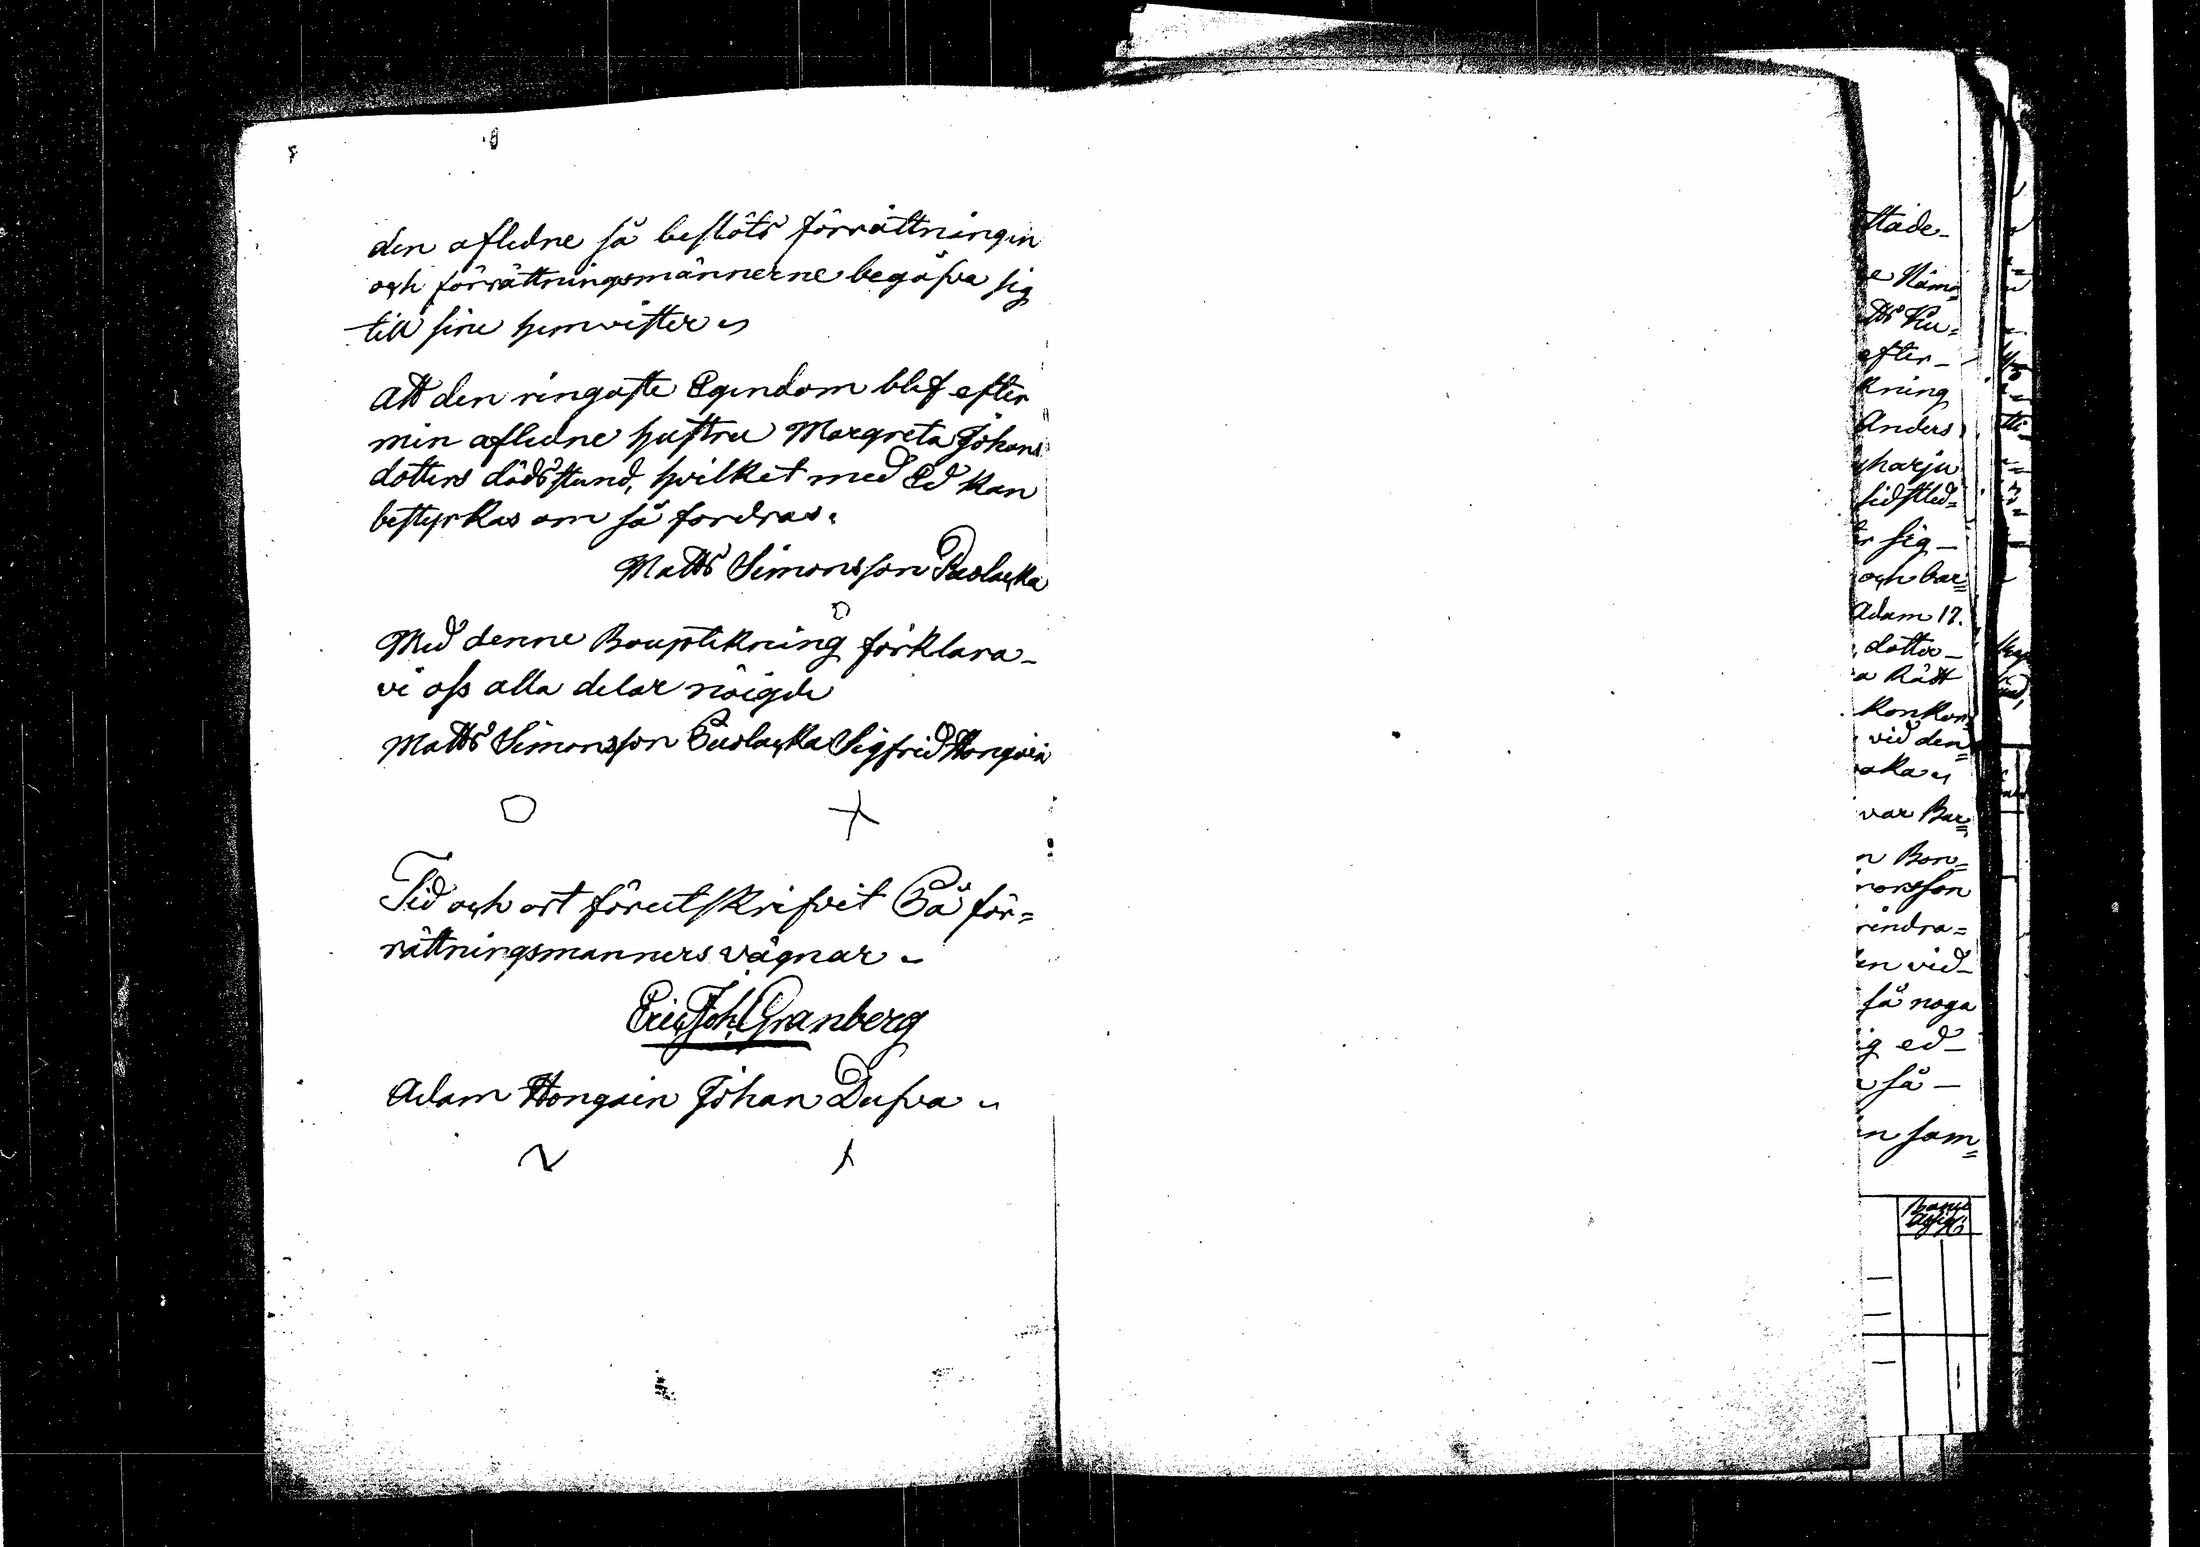 den afledne så beslöts förrättningen
och förrättningsmännerne begåfva sig
till sine hemvister
att den ringaste Egendom blef efter
min afledne hustru Margreta Johans
dotters dödsstund, hvilket med Ed kan
bestyrkas om så fordras.
Matts Simonsson
Med denne Bouptekning förklara
vi oss alla delar nöigde
Matts Simonsson Sigfrid Hongain
Tid och ort förutskrifvit På för=
rättningsmanners vägnar
Eric Joh. Granberg
Adam Hongain Johan Dufva
efter
kning
Anders
harju
sidstled=
sig
och bar=
Adam 17.
dotter
a Rätt
vid den
var Bar=
vid
så noga
ig ed
så